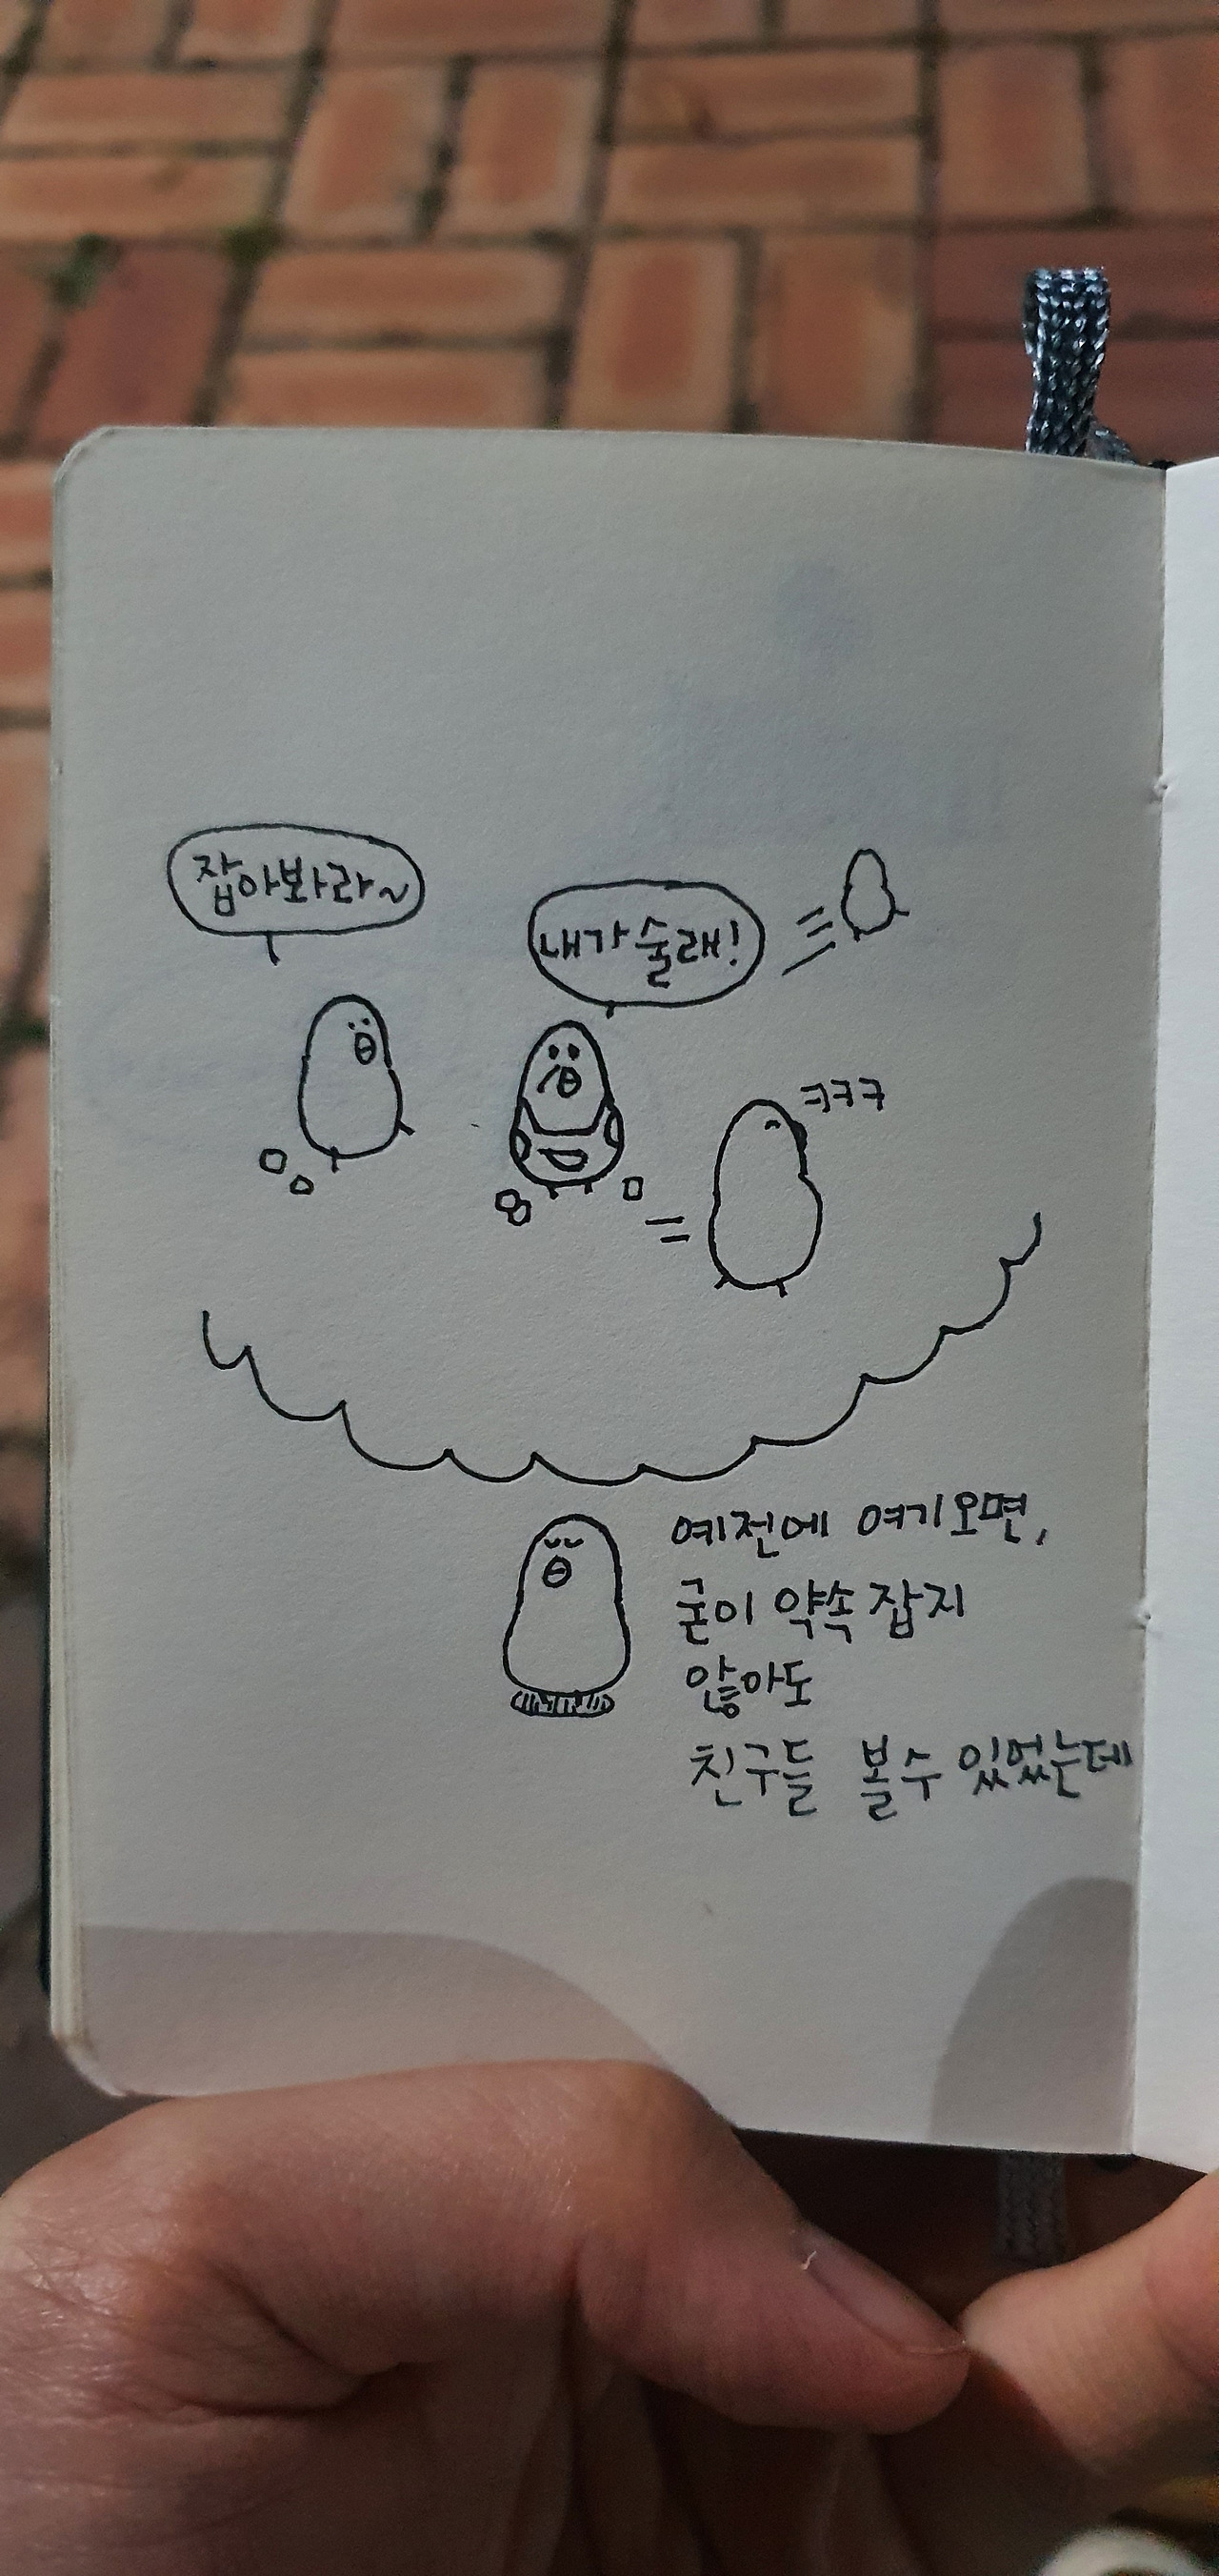 잡아봐라~
내가 술래!
ㅋㅋㅋ
예전에 여기오면,
굳이 약속 잡지
않아도
친구들 볼수 있었는데